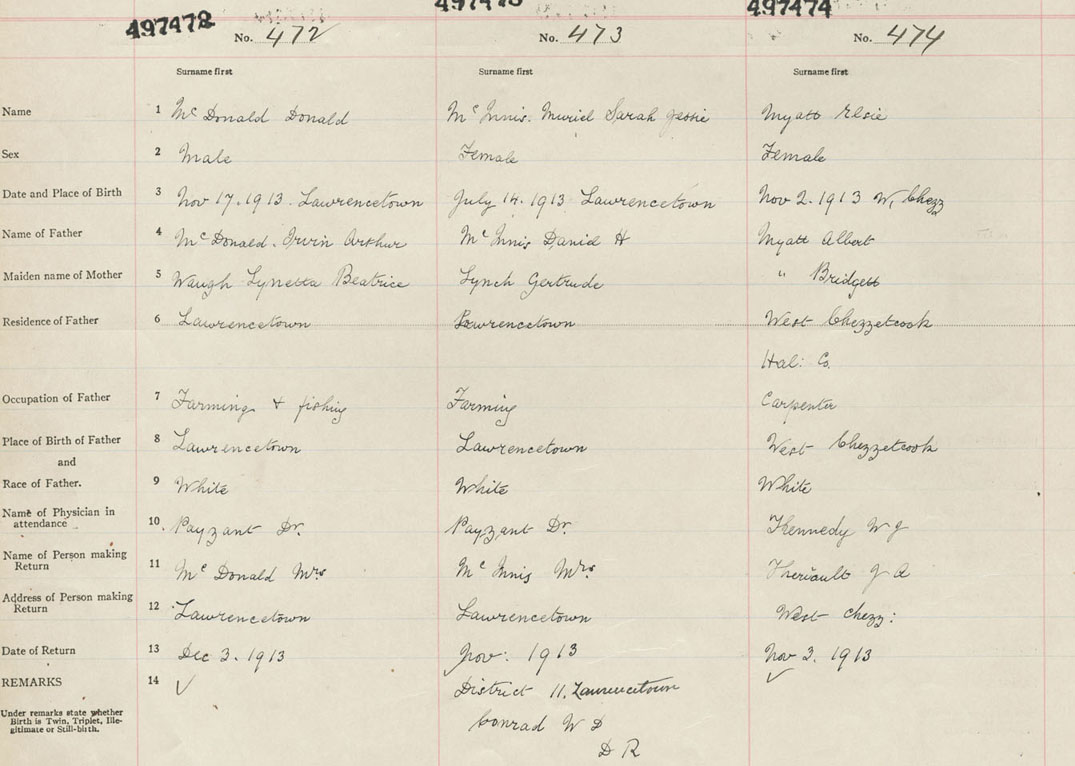 497472 497473 497474
No. 472 No. 473 No. 474
Surname first Surname first Surname first
Name 1 McDonald Donald McInnis. Muriel Sarah Jessie Myatt Elsie
Sex 2 Male Female Female
Date and Place of Birth 3 Nov 17. 1913. Lawrencetown July 14. 1913 Lawrencetown Nov 2. 1913 W, Chezz
Name of Father 4 McDonald. Irvin Arthur McInnis Daniel H Myatt Albert
Maiden name of Mother 5 Waugh Lynetta Beatrice Lynch Gertrude " Bridgett
Residence of Father 6 Lawrencetown Lawrencetown West Chezzetcook
Hal: Co.
Occupation of Father 7 Farming & fishing Farming Carpenter
Place of Birth of Father 8 Lawrencetown Lawrencetown West Chezzetcook
and
Race of Father. 9 White White White
Name of Physician in
attendance 10. Payzant Dr. Payzant Dr. Kennedy W J
Name of Person making
Return 11 McDonald Mrs McInnis Mrs. Theriault J A
Address of Person making
Return 12 Lawrencetown Lawrencetown West Chezz:
Date of Return 13 Dec 3. 1913 Nov: 1913 Nov 3. 1913
REMARKS 14 ✓ District 11. Lawrencetown ✓
Under remarks state whether
Birth is Twin, Triplet, Ille-
gitimate or Still-birth.
Conrad W D
D R